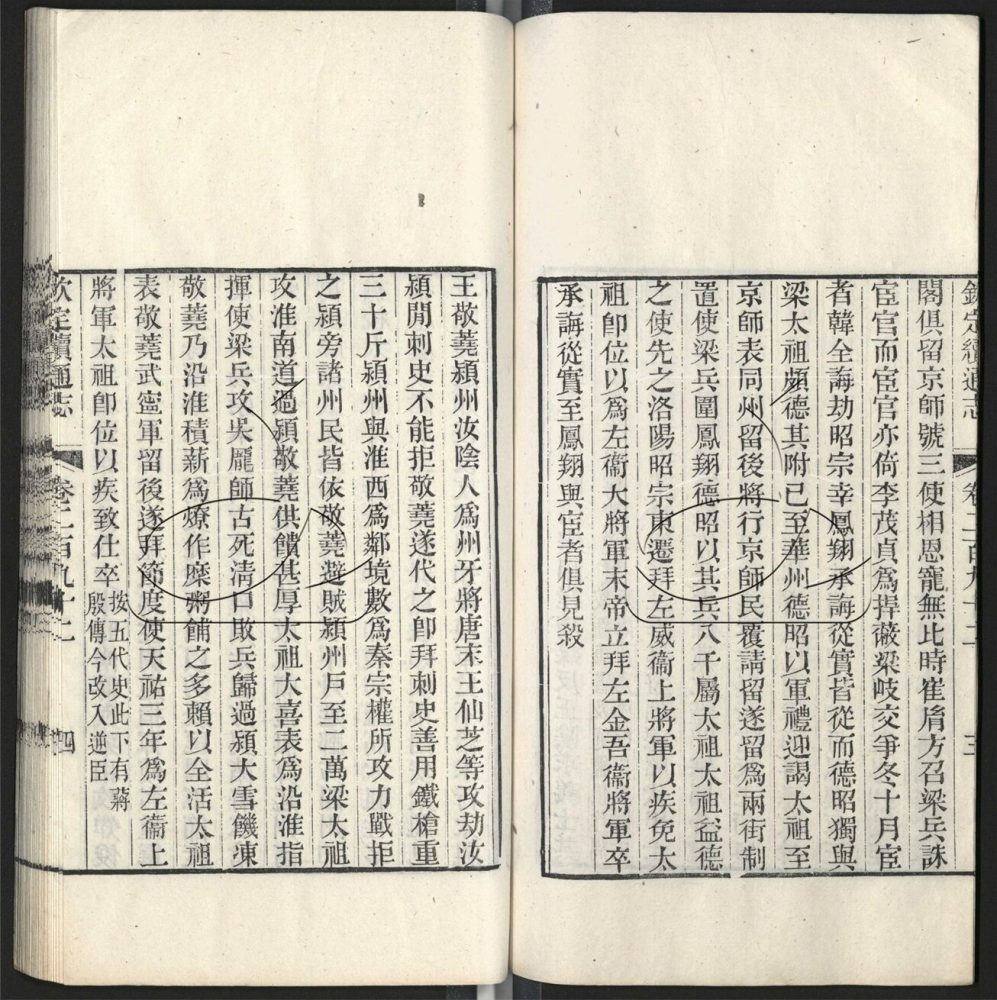 欽定續通志 卷二百九十二 三
閣俱留京師號三使相恩寵無比時崔脀方召梁兵誅
宦官而宦官亦倚李茂貞為捍蔽梁岐交爭冬十月宦
者韓全誨劫昭宗幸鳳翔承誨從實皆從而德昭獨與
梁太祖頗德其附已至華州德昭以軍禮迎謁太祖至
京師表同州留後將行京師民覆請留遂留為兩街制
置使梁兵圍鳳翔德昭以其兵八千屬太祖太祖益德
之使先之洛陽昭宗東遷拜左威衞上將軍以疾免太
祖卽位以為左衞大將軍末帝立拜左金吾衞將軍卒
承誨從實至鳳翔與宦者俱見殺
王敬蕘潁州汝陰人為州牙將唐末王仙芝等攻劫汝
潁閒刺史不能拒敬蕘遂代之卽拜刺史善用鐵槍重
三十斤潁州與淮西為鄰境數為秦宗權所攻力戰拒
之潁旁諸州民皆依敬蕘避賊潁州戶至二萬梁太祖
攻淮南道過潁敬蕘供饋甚厚太祖大喜表為沿淮指
揮使梁兵攻吳龎師古死淸口敗兵歸過潁大雪饑凍
敬蕘乃沿淮積薪為燎作糜粥餔之多賴以全活太祖
表敬蕘武寧軍留後遂拜節度使天祐三年為左衞上
將軍太祖卽位以疾致仕卒 按五代史此下有蔣
殷傳今改入逆臣
欽定續通志 卷二百九十二 四